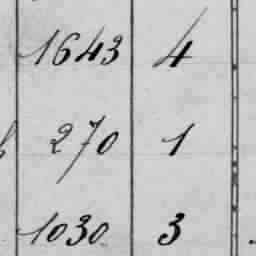 1643 4
270 1
1030 3